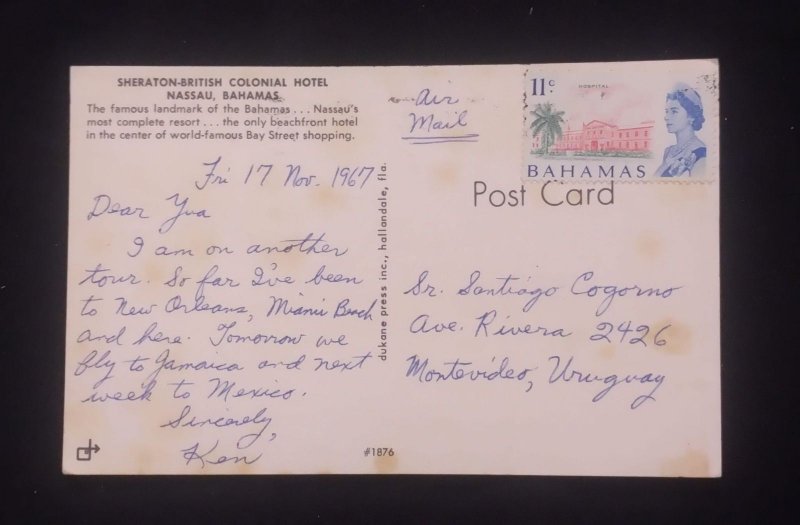 SHERATON-BRITISH COLONIAL HOTEL
NASSAU, BAHAMAS
The famous landmark of the Bahamas . . . Nassau's
most complete resort . . . the only beachfront hotel
in the center of world-famous Bay Street shopping.
Fri 17 Nov. 1967
Dear Yva
I am on another
tour. So far I've been
to New Orleans, Miami Beach
and here. Tomorrow we
fly to Jamaica and next
week to Mexico.
Sincerely,
Ken
dukane press inc., hallandale, fla.
#1876
Air
Mail
11c
HOSPITAL
BAHAMAS
Post Card
Sr. Santiago Cogorno
Ave. Rivera 2426
Montevideo, Uruguay